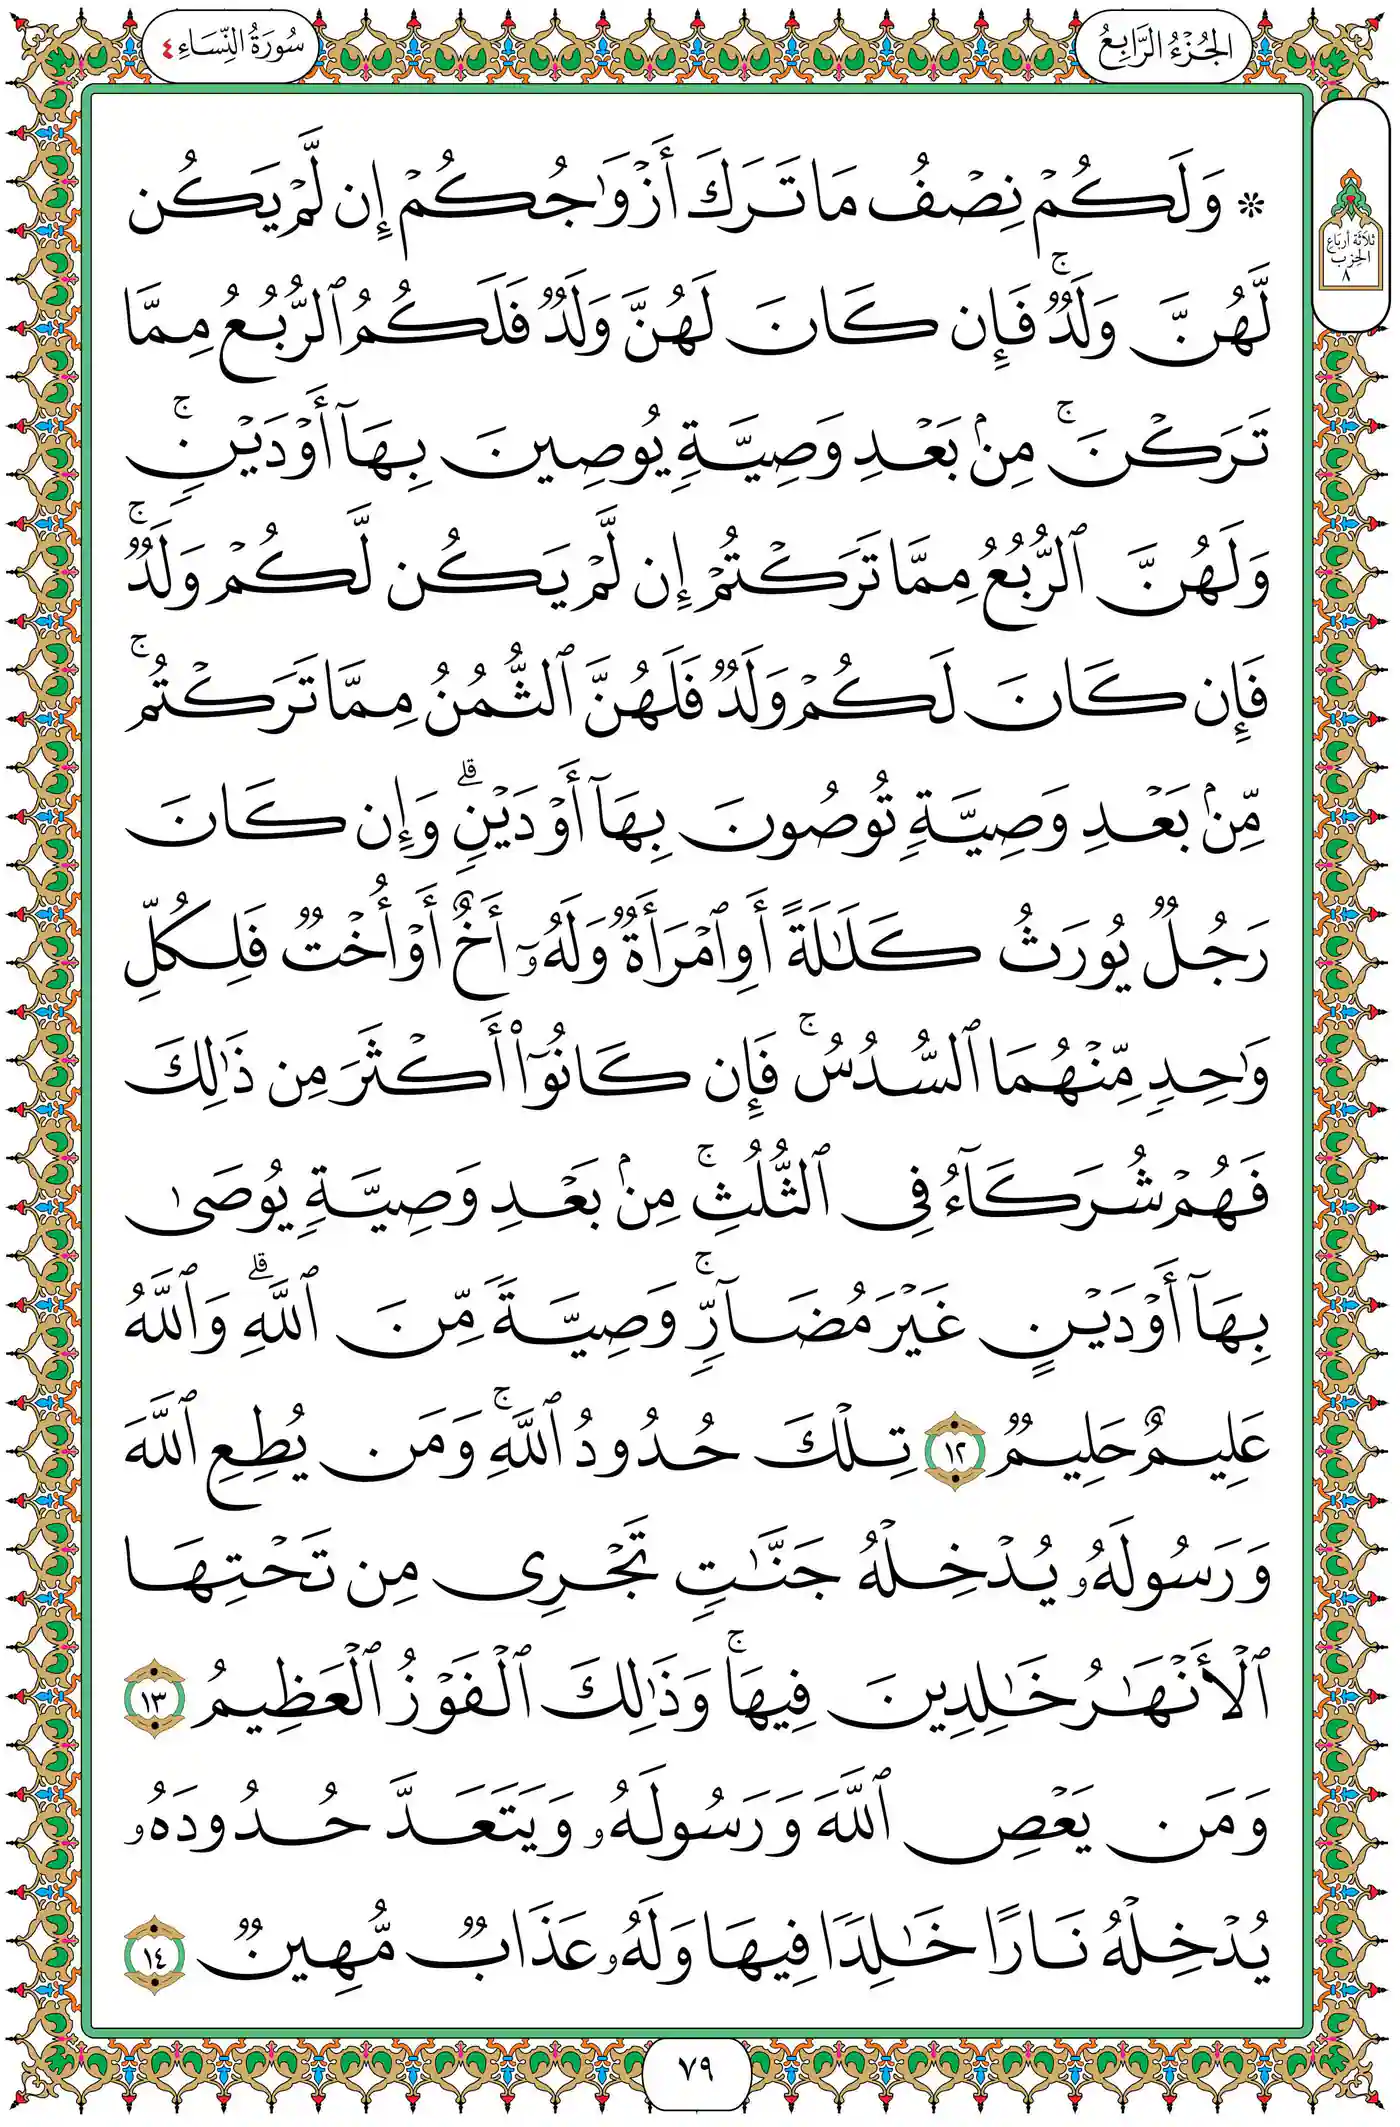 الجُزْءُ الرَّابِعُ
سُورَةُ النِّسَاءِ ٤
۞ وَلَكُمۡ نِصۡفُ مَا تَرَكَ أَزۡوَٰجُكُمۡ إِن لَّمۡ يَكُن
لَّهُنَّ وَلَدٞۚ فَإِن كَانَ لَهُنَّ وَلَدٞ فَلَكُمُ ٱلرُّبُعُ مِمَّا
تَرَكۡنَۚ مِنۢ بَعۡدِ وَصِيَّةٖ يُوصِينَ بِهَآ أَوۡ دَيۡنٖۚ
وَلَهُنَّ ٱلرُّبُعُ مِمَّا تَرَكۡتُمۡ إِن لَّمۡ يَكُن لَّكُمۡ وَلَدٞۚ
فَإِن كَانَ لَكُمۡ وَلَدٞ فَلَهُنَّ ٱلثُّمُنُ مِمَّا تَرَكۡتُمۚ
مِّنۢ بَعۡدِ وَصِيَّةٖ تُوصُونَ بِهَآ أَوۡ دَيۡنٖۗ وَإِن كَانَ
رَجُلٞ يُورَثُ كَلَٰلَةً أَوِ ٱمۡرَأَةٞ وَلَهُۥٓ أَخٌ أَوۡ أُخۡتٞ فَلِكُلِّ
وَٰحِدٖ مِّنۡهُمَا ٱلسُّدُسُۚ فَإِن كَانُوٓاْ أَكۡثَرَ مِن ذَٰلِكَ
فَهُمۡ شُرَكَآءُ فِي ٱلثُّلُثِۚ مِنۢ بَعۡدِ وَصِيَّةٖ يُوصَىٰ
بِهَآ أَوۡ دَيۡنٍ غَيۡرَ مُضَآرّٖۚ وَصِيَّةٗ مِّنَ ٱللَّهِۗ وَٱللَّهُ
عَلِيمٌ حَلِيمٞ ١٢ تِلۡكَ حُدُودُ ٱللَّهِۚ وَمَن يُطِعِ ٱللَّهَ
وَرَسُولَهُۥ يُدۡخِلۡهُ جَنَّٰتٖ تَجۡرِي مِن تَحۡتِهَا
ٱلۡأَنۡهَٰرُ خَٰلِدِينَ فِيهَاۚ وَذَٰلِكَ ٱلۡفَوۡزُ ٱلۡعَظِيمُ ١٣
وَمَن يَعۡصِ ٱللَّهَ وَرَسُولَهُۥ وَيَتَعَدَّ حُدُودَهُۥ
يُدۡخِلۡهُ نَارًا خَٰلِدٗا فِيهَا وَلَهُۥ عَذَابٞ مُّهِينٞ ١٤
ثلاثة أرباع
الحزب
٨
٧٩